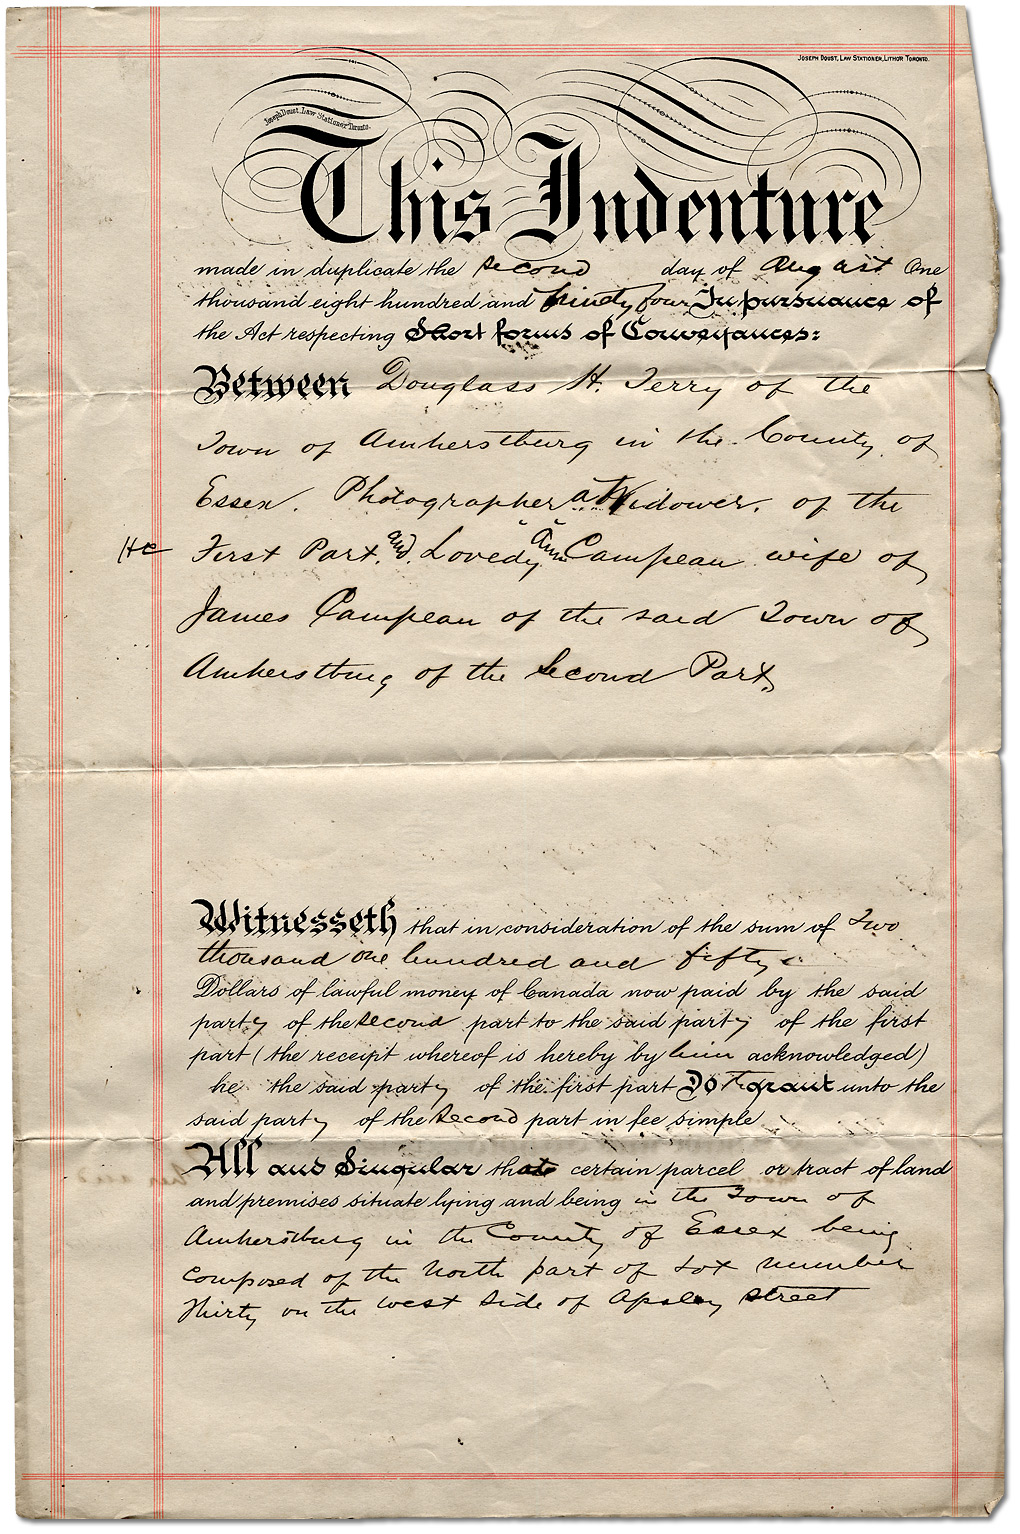 Joseph Doust, Law Stationer, Lithor Toronto.
Joseph Doust, Law Stationer Toronto.
This Indenture
made in duplicate the second day of August One
thousand eight hundred and ninety four In pursuance of
the Act respecting Short forms of Conveyances:
Between Douglass H. Terry of the
Town of Amherstburg in the County of
Essex. Photographer a Widower, of the
First Part. and Lovedy Ann Campeau wife of
James Campeau of the said Town of
Amherstburg of the Second Part,
Witnesseth that in consideration of the sum of Two
thousand one hundred and fifty
Dollars of lawful money of Canada now paid by the said
party of the second part to the said party of the first
part (the receipt whereof is hereby by him acknowledged)
he the said party of the first part Doth grant unto the
said party of the second part in fee simple
All and Singular that certain parcel or tract of land
and premises situate lying and being in the Town of
Amherstburg in the County of Essex being
composed of the North part of Lot number
Thirty on the west side of Apsley street